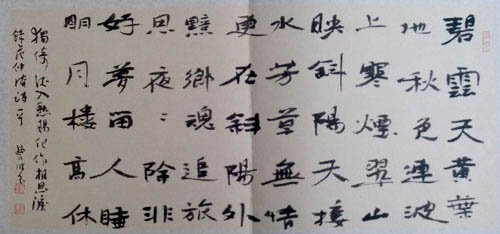 碧雲天黄葉
地秋色連波
上寒煙翠山
映斜陽天接
水芳草無情
更在斜陽外
黯鄉魂追旅
思夜〻除非
好夢留人睡
明月樓高休
獨倚酒入愁腸化作相思淚
錄范仲淹詞